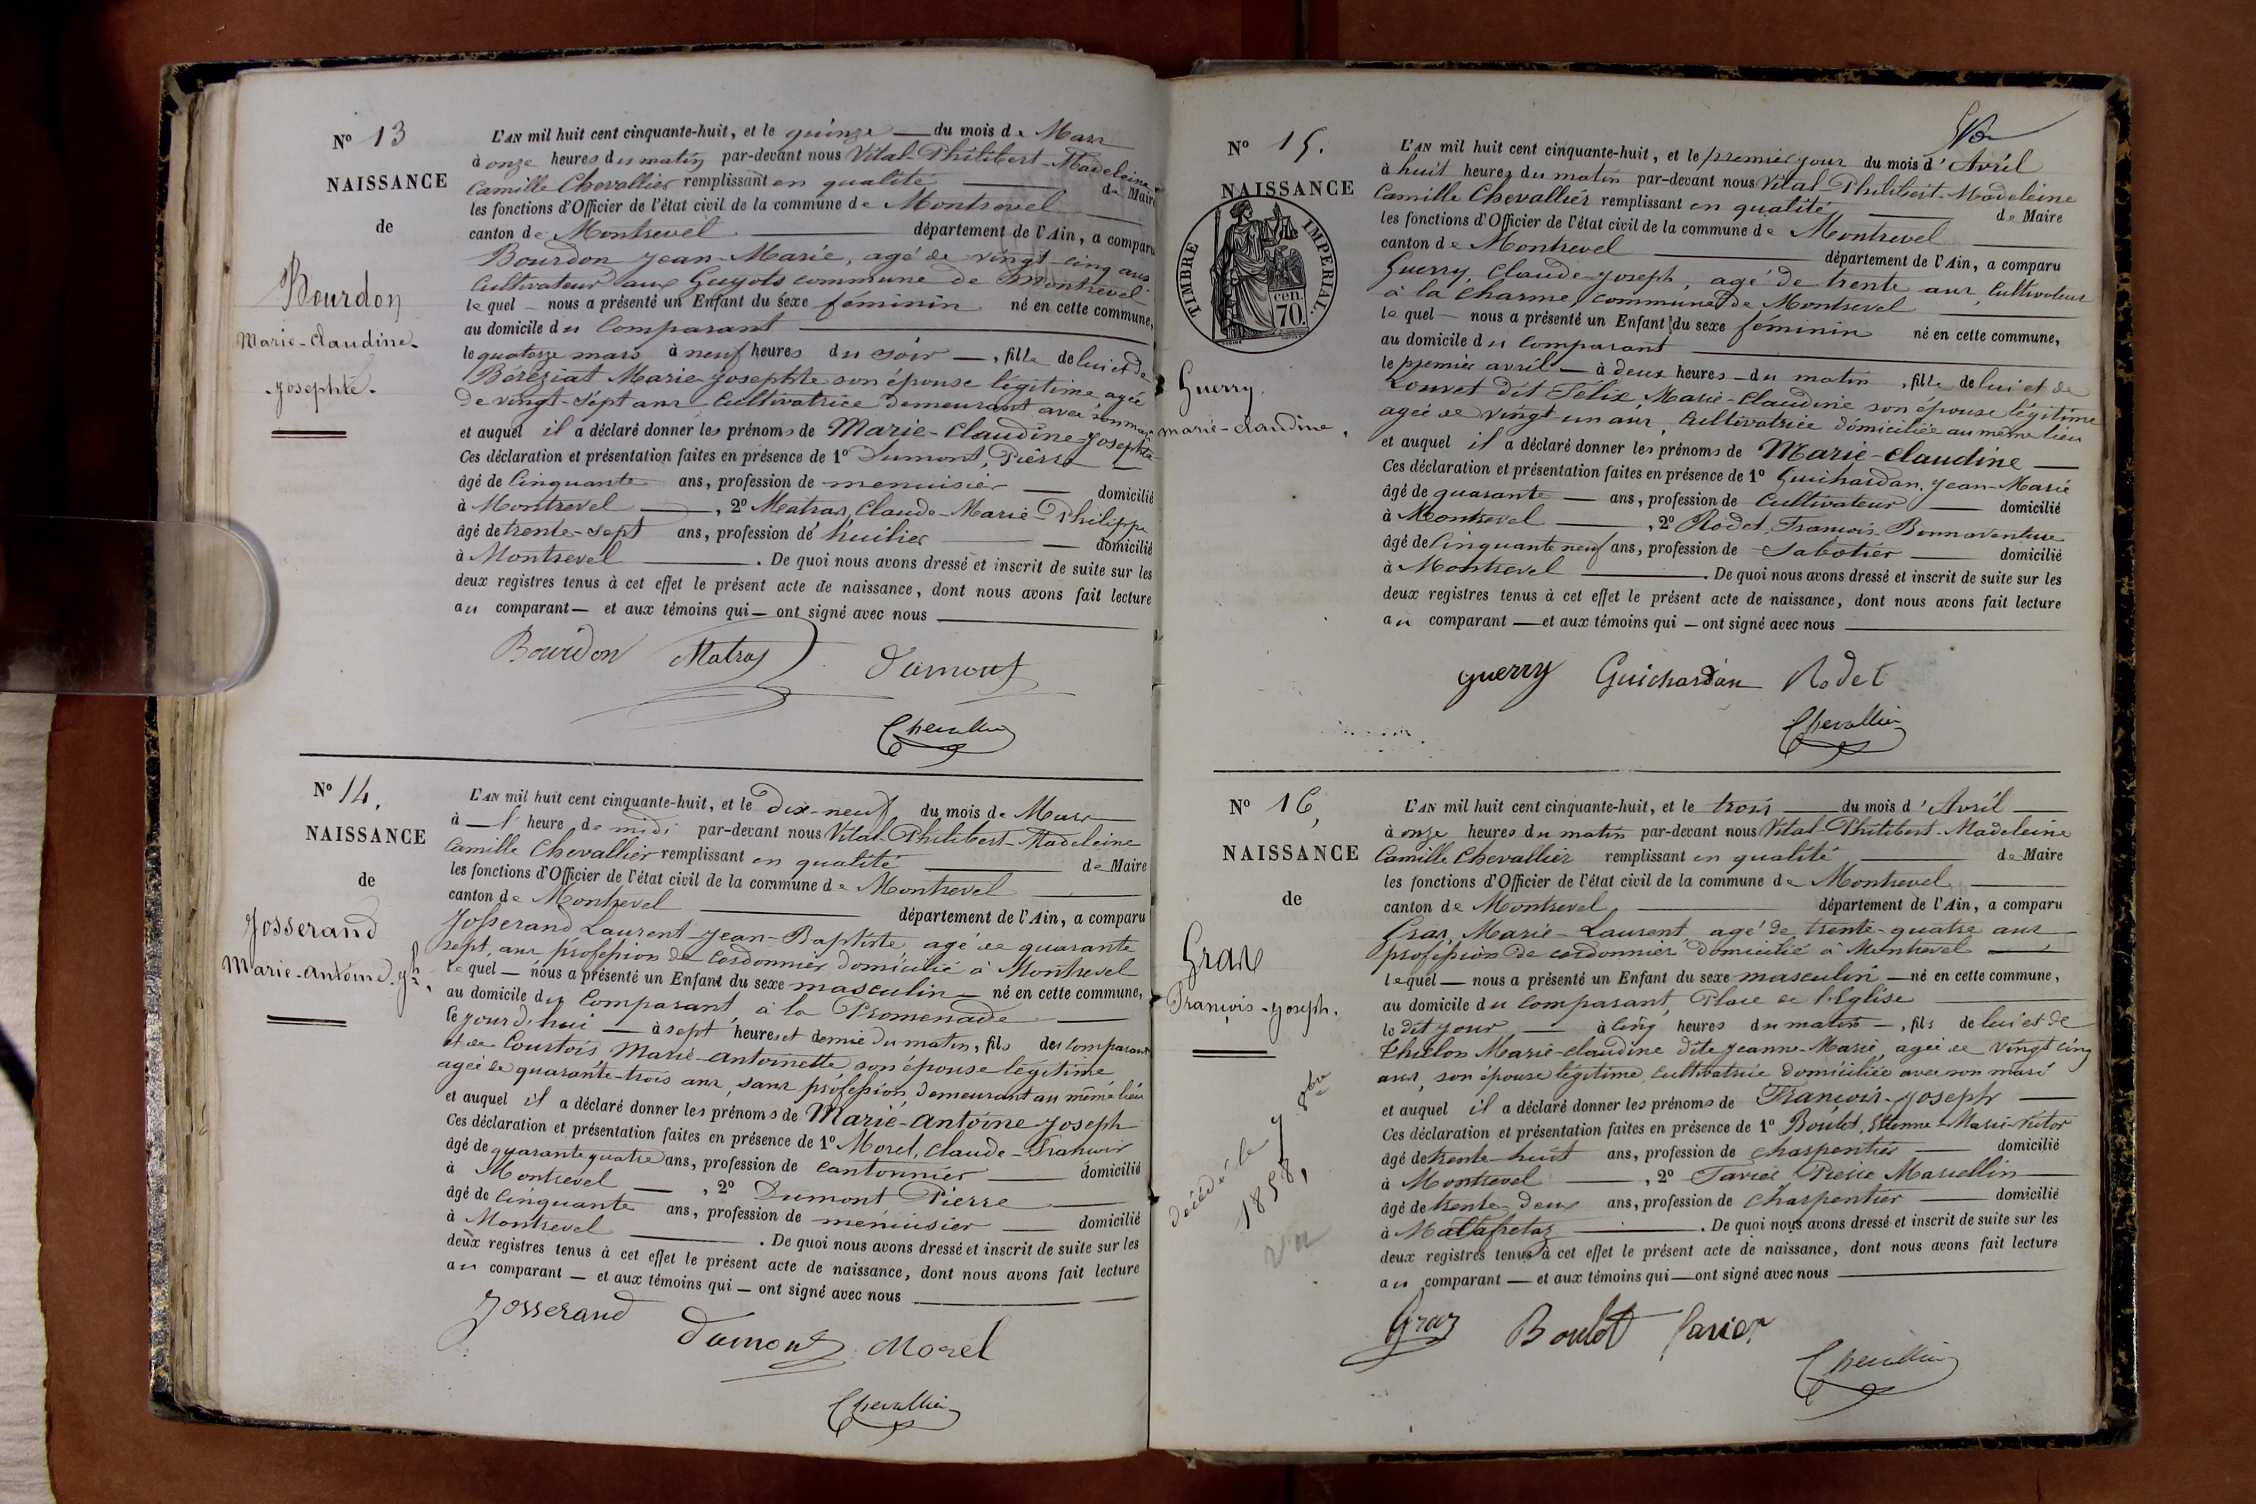 N° 13
NAISSANCE
de
Bourdon
Marie-Claudine-
Josephte.
L'AN mil huit cent cinquante-huit, et le quinze du mois de Mars
à onze heures du matin par-devant nous Vital-Philibert-Madeleine
Camille Chevallier remplissant en qualité de Maire
les fonctions d'Officier de l'état civil de la commune de Montrevel
canton de Montrevel département de l'Ain, a comparu
Bourdon Jean-Marie, agé de vingt-cinq ans
Cultivateur aux Guyots commune de Montrevel
lequel nous a présenté un Enfant du sexe féminin né en cette commune,
au domicile du Comparant
le quatorze mars à neuf heures du soir, fille de lui et de
Béréziat Marie-Josephte son épouse légitime agée
de vingt-sept ans Cultivatrice demeurant avec son mari
et auquel il a déclaré donner les prénoms de Marie-Claudine-Josephte
Ces déclaration et présentation faites en présence de 1° Dumont, Pierre
âgé de Cinquante ans, profession de menuisier domicilié
à Montrevel, 2° Matras, Claude-Marie-Philippe
âgé de trente-sept ans, profession de huilier domicilié
à Montrevel. De quoi nous avons dressé et inscrit de suite sur les
deux registres tenus à cet effet le présent acte de naissance, dont nous avons fait lecture
au comparant et aux témoins qui ont signé avec nous
Bourdon Matras Dumont
Chevallier
N° 14.
NAISSANCE
de
Josserand
Marie-Antoine-Jh.
L'AN mil huit cent cinquante-huit, et le Dix-neuf du mois de Mars
à l'heure de midi par-devant nous Vital-Philibert-Madeleine
Camille Chevallier remplissant en qualité de Maire
les fonctions d'Officier de l'état civil de la commune de Montrevel
canton de Montrevel département de l'Ain, a comparu
Josserand Laurent-Jean-Baptiste agé de quarante
sept ans profession de Cordonnier domicilié à Montrevel
lequel nous a présenté un Enfant du sexe masculin né en cette commune,
au domicile du Comparant, à la Promenade
le jourd'hui à sept heures et demie du matin, fils des comparant
et de Courtois Marie-Antoinette son épouse légitime
agée de quarante-trois ans, sans profession, demeurant au même lieu
et auquel il a déclaré donner les prénoms de Marie-Antoine Joseph
Ces déclaration et présentation faites en présence de 1° Morel, Claude-François
âgé de quarante quatre ans, profession de cantonnier domicilié
à Montrevel, 2° Dumont Pierre
âgé de Cinquante ans, profession de menuisier domicilié
à Montrevel. De quoi nous avons dressé et inscrit de suite sur les
deux registres tenus à cet effet le présent acte de naissance, dont nous avons fait lecture
au comparant et aux témoins qui ont signé avec nous
Josserand Dumont Morel
Chevallier
N° 15.
NAISSANCE
TIMBRE IMPERIAL.
cen.
70
Guerry
marie-claudine,
L'AN mil huit cent cinquante-huit, et le premier jour du mois d'Avril
à huit heures du matin par-devant nous Vital-Philibert-Madeleine
Camille Chevallier remplissant en qualité de Maire
les fonctions d'Officier de l'état civil de la commune de Montrevel
canton de Montrevel département de l'Ain, a comparu
Guerry, Claude-Joseph, agé de trente ans, Cultivateur
à la Charme, commune de Montrevel
lequel nous a présenté un Enfant du sexe féminin né en cette commune,
au domicile du comparant
le premier avril à deux heures du matin, fille de lui et de
Louvet dit Félix Marie-Claudine son épouse légitime
agée de vingt un ans, Cultivatrice domiciliée au même lieu
et auquel il a déclaré donner les prénoms de Marie-Claudine
Ces déclaration et présentation faites en présence de 1° Guichardan, Jean-Marie
âgé de quarante ans, profession de Cultivateur domicilié
à Montrevel, 2° Rodet, François Bonnaventure
âgé de Cinquante neuf ans, profession de Sabotier domicilié
à Montrevel. De quoi nous avons dressé et inscrit de suite sur les
deux registres tenus à cet effet le présent acte de naissance, dont nous avons fait lecture
au comparant et aux témoins qui ont signé avec nous
Guerry Guichardan Rodet
Chevallier
N° 16,
NAISSANCE
de
Gras
François-Joseph.
Décédé le 7 8bre
1858,
vu
L'AN mil huit cent cinquante-huit, et le trois du mois d'Avril
à onze heures du matin par-devant nous Vital-Philibert-Madeleine
Camille Chevallier remplissant en qualité de Maire
les fonctions d'Officier de l'état civil de la commune de Montrevel
canton de Montrevel département de l'Ain, a comparu
Gras, Marie-Laurent agé de trente-quatre ans
profession de cordonnier domicilié à Montrevel
lequel nous a présenté un Enfant du sexe masculin né en cette commune,
au domicile du comparant, Place de l'Eglise
le dit jour à cinq heures du matin, fils de lui et de
Marie-Claudine dite Jeanne-Marie, agée de vingt cinq
ans, son épouse légitime, Cultivatrice domiciliée avec son mari
et auquel il a déclaré donner les prénoms de François-Joseph
Ces déclaration et présentation faites en présence de 1° Boulot, Etienne-Marie-Victor
âgé de trente-huit ans, profession de charpentier domicilié
à Montrevel, 2° Favier, Pierre Marcellin
âgé de trente deux ans, profession de Charpentier domicilié
à Malafretaz. De quoi nous avons dressé et inscrit de suite sur les
deux registres tenus à cet effet le présent acte de naissance, dont nous avons fait lecture
au comparant et aux témoins qui ont signé avec nous
Gras Boulot favier
Chevallier